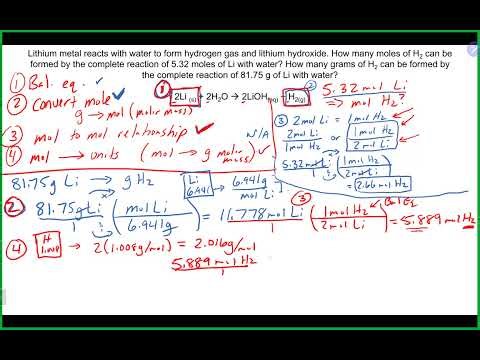 Lithium metal reacts with water to form hydrogen gas and lithium hydroxide. How many moles of H₂ can be
formed by the complete reaction of 5.32 moles of Li with water? How many grams of H₂ can be formed by
the complete reaction of 81.75 g of Li with water?
① Bal. eq. ✓
② convert mole ✓
g → mol (molar mass)
③ mol to mol relationship
④ mol → units (mol → g molar mass)
N/A
① 2Li(s) + 2H₂O → 2LiOH(aq) + H₂(g)
② 5.32 mol Li
⇒ mol H₂?
③ 2 mol Li = 1 mol H₂
2mol Li / 1mol H₂ or 1mol H₂ / 2 mol Li
5.32 mol Li / 1 (1mol H₂ / 2mol Li)
= 2.66 mol H₂
81.75g Li → g H₂
Li 6.941 → 6.941g / mol Li
② 81.75g Li / 1 (mol Li / 6.941g) = 11.778 mol Li / 1 ③ (1mol H₂ / 2mol Li) Bal Eq = 5.889 mol H₂
④ H 1.008 → 2(1.008g/mol) = 2.016g/mol
5.889 mol H₂ / 1